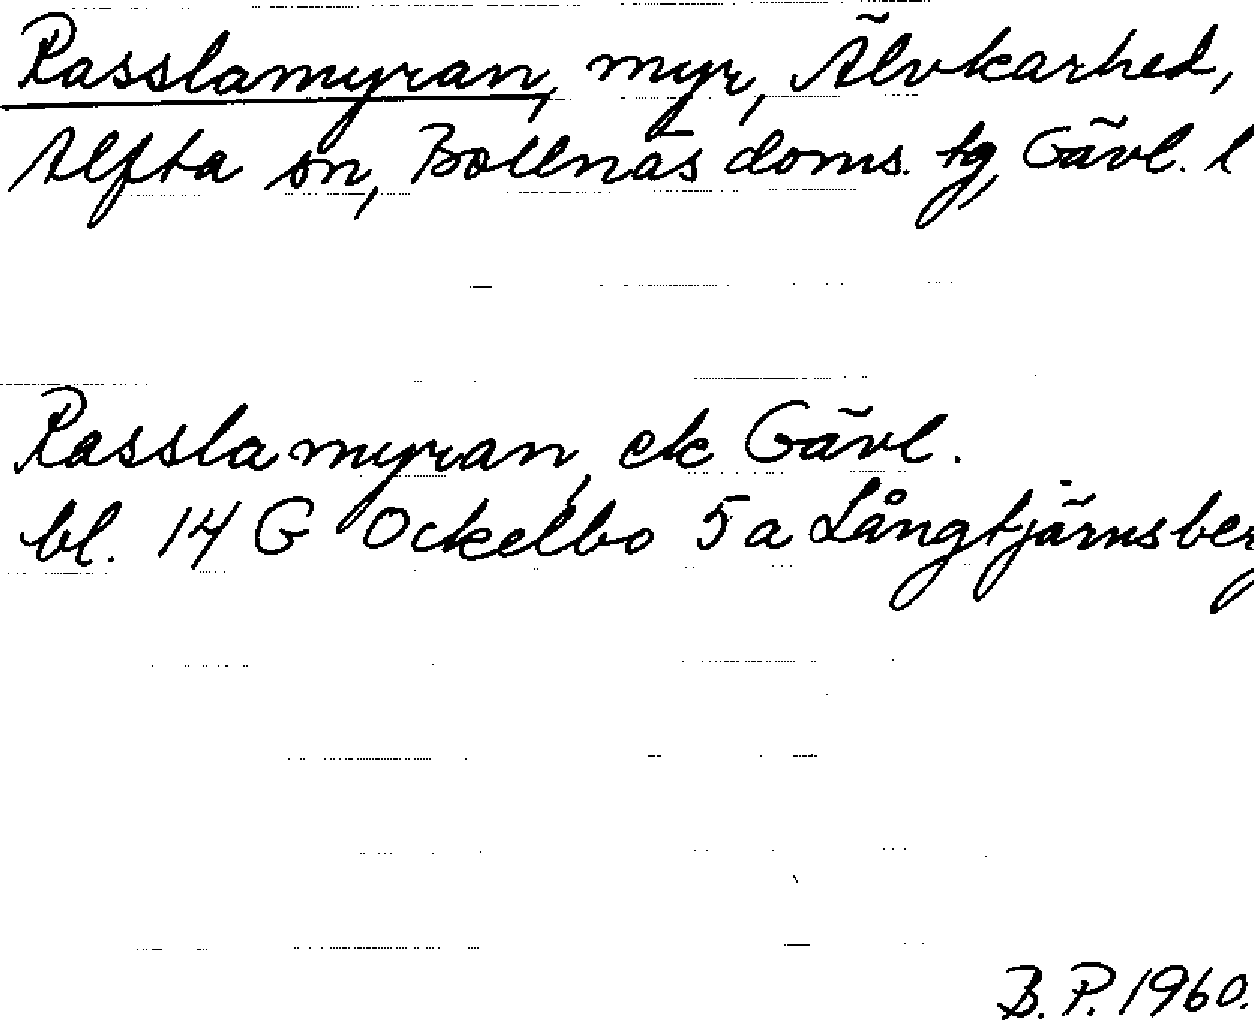 Rasslamyran, myr, Älvkarhed,
Alfta sn, Bollnäs doms. tg, Gävl. l
Rasslamyran, ek Gävl.
bl. 14 G Ockelbo 5 a Långtjärnsberg
B. P. 1960.